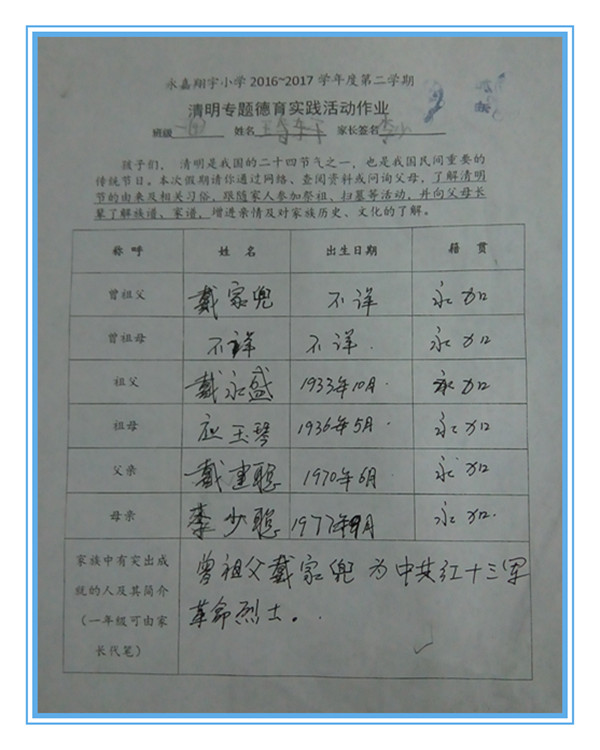 永嘉翔宇小学 2016~2017 学年度第二学期
清明专题德育实践活动作业
班级 姓名 家长签名
孩子们， 清明是我国的二十四节气之一，也是我国民间重要的
传统节日。本次假期请你通过网络、查阅资料或问询父母，了解清明
节的由来及相关习俗，跟随家人参加祭祖、扫墓等活动，并向父母长
辈了解族谱、家谱，增进亲情及对家族历史、文化的了解。
称 呼 姓 名 出生日期 籍 贯
曾祖父 戴家兜 不详 永加
曾祖母 不详 不详. 永加
祖父 戴永盛 1933年10月. 永加
祖母 应玉琴 1936年5月. 永加
父亲 戴建聪 1970年6月. 永加
母亲 李少聪 1977年9月 永加.
家族中有突出成
就的人及其简介
（一年级可由家
长代笔）
曾祖父戴家兜为中共红十三军
革命烈士。